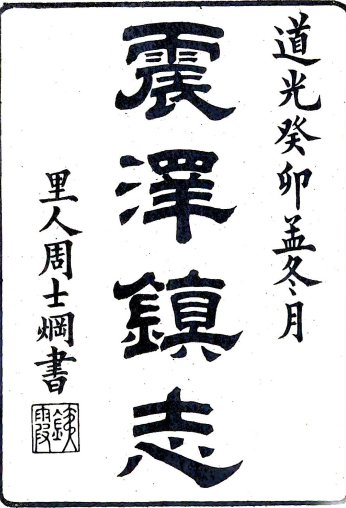 道光癸卯孟冬月
震澤鎮志
里人周士爃書